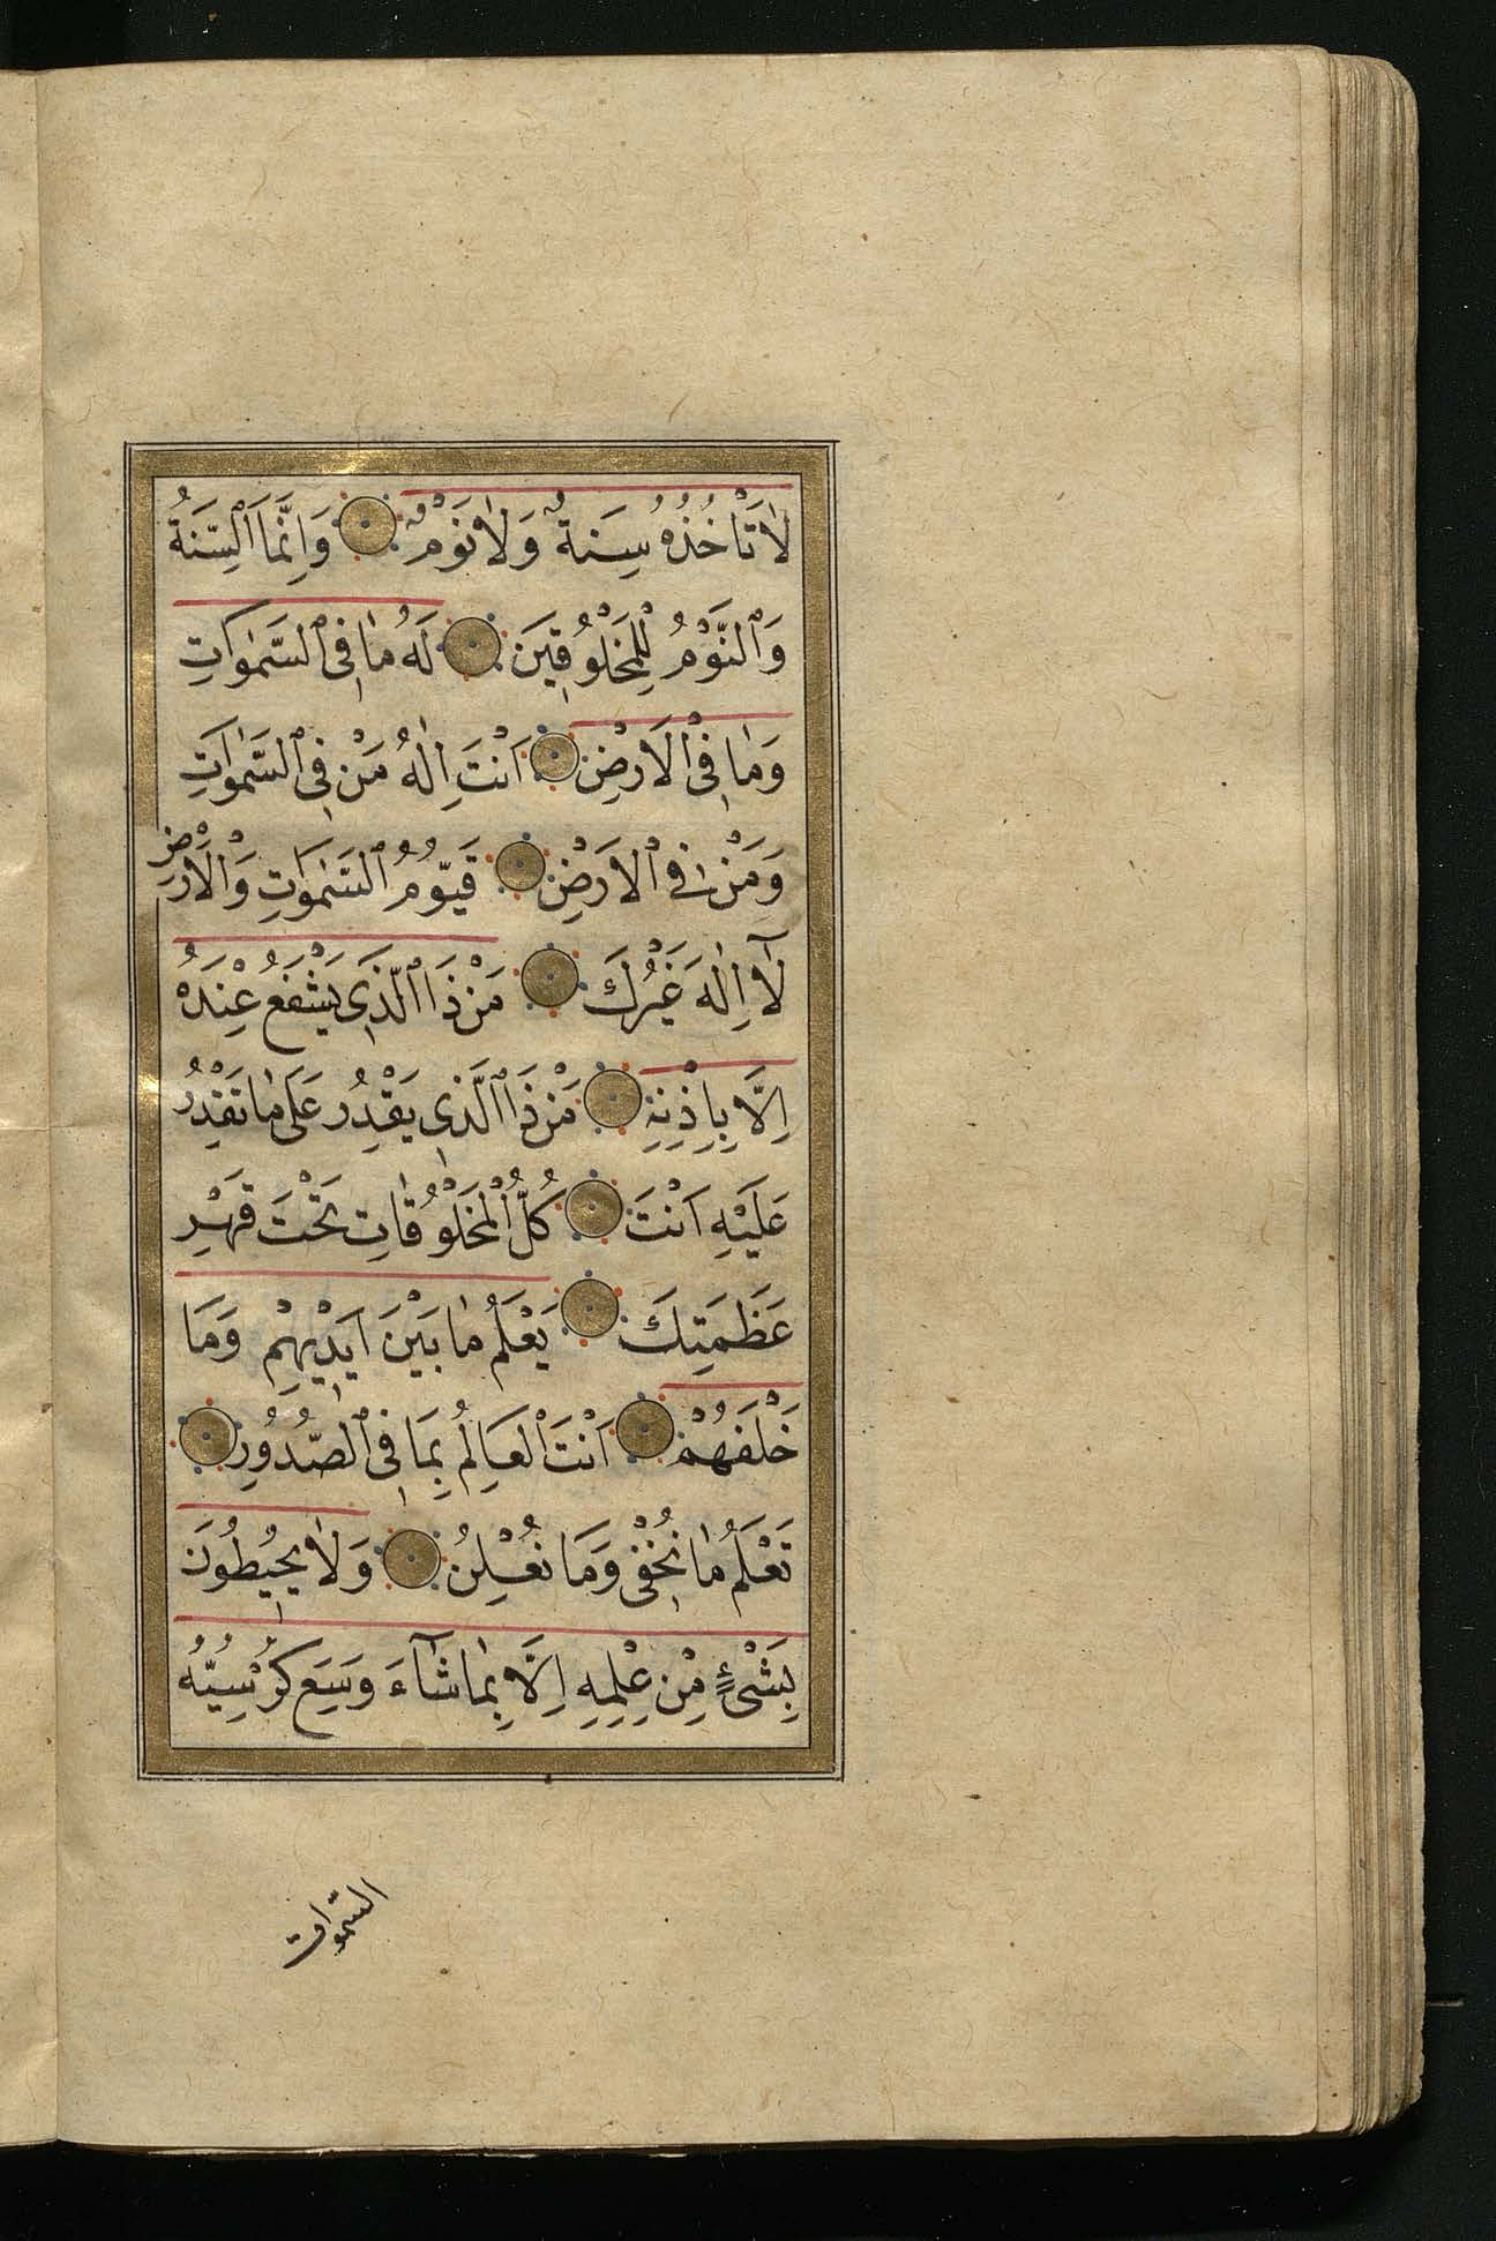 لَا تَأْخُذُهُ سِنَةٌ وَلَا نَوْمٌ وَاِنَّمَا السِّنَةُ
وَالنَّوْمُ لِلْمَخْلُوقِينَ لَهُ مَا فِى السَّمٰوَاتِ
وَمَا فِى الْاَرْضِ اَنْتَ اِلٰهُ مَنْ فِى السَّمٰوَاتِ
وَمَنْ فِى الْاَرَضِ قَيُّومُ السَّمٰوَاتِ وَالْاَرْضِ
لَآ اِلٰهَ غَيْرُكَ مَنْ ذَا الَّذِى يَشْفَعُ عِنْدَهُ
اِلَّا بِاِذْنِهِ مَنْ ذَا الَّذِى يَقْدِرُ عَلَى مَا تَقْدِرُ
عَلَيْهِ اَنْتَ كُلُّ الْمَخْلُوقَاتِ تَحْتَ قَهْرِ
عَظَمَتِكَ يَعْلَمُ مَا بَيْنَ اَيْدِيهِمْ وَمَا
خَلْفَهُمْ اَنْتَ الْعَالِمُ بِمَا فِى الصُّدُورِ
تَعْلَمُ مَا نُخْفِى وَمَا نُعْلِنُ وَلَا يُحِيطُونَ
بِشَىْءٍ مِنْ عِلْمِهِ اِلَّا بِمَا شَآءَ وَسِعَ كُرْسِيُّهُ
السموات